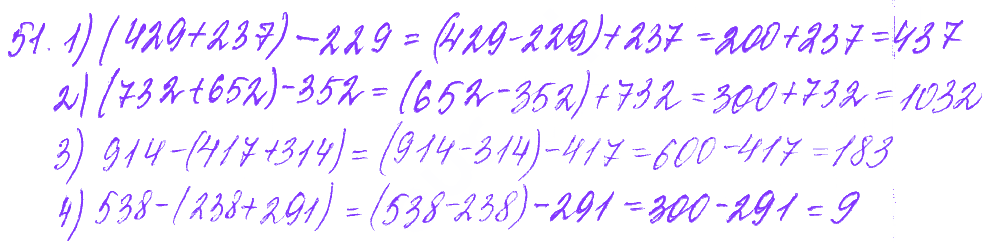 51. 1) (429+237)-229=(429-229)+237=200+237=437
2) (732+652)-352=(652-352)+732=300+732=1032
3) 914-(417+314)=(914-314)-417=600-417=183
4) 538-(238+291)=(538-238)-291=300-291=9